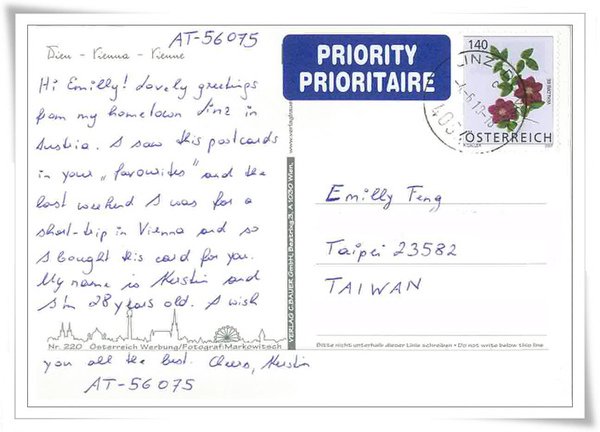 AT-56075
Wien - Vienna - Vienne
Hi Emilly! Lovely greetings
from my hometown Linz in
Austria. I saw this postcards
in your „favowites" and the
last weekend I was for a
short-trip in Vienna and so
I bought this card for you.
My name is Kerstin and
I'm 28 years old. I wish
you all the best. Cheers, Kerstin
AT-56075
Nr. 220 Österreich Werbung/Fotograf:Markowitsch
PRIORITY
PRIORITAIRE
140
ÖSTERREICH
Emilly Feng
Taipei 23582
TAIWAN
Bitte nicht unterhalb dieser Linie schreiben • Do not write below this line